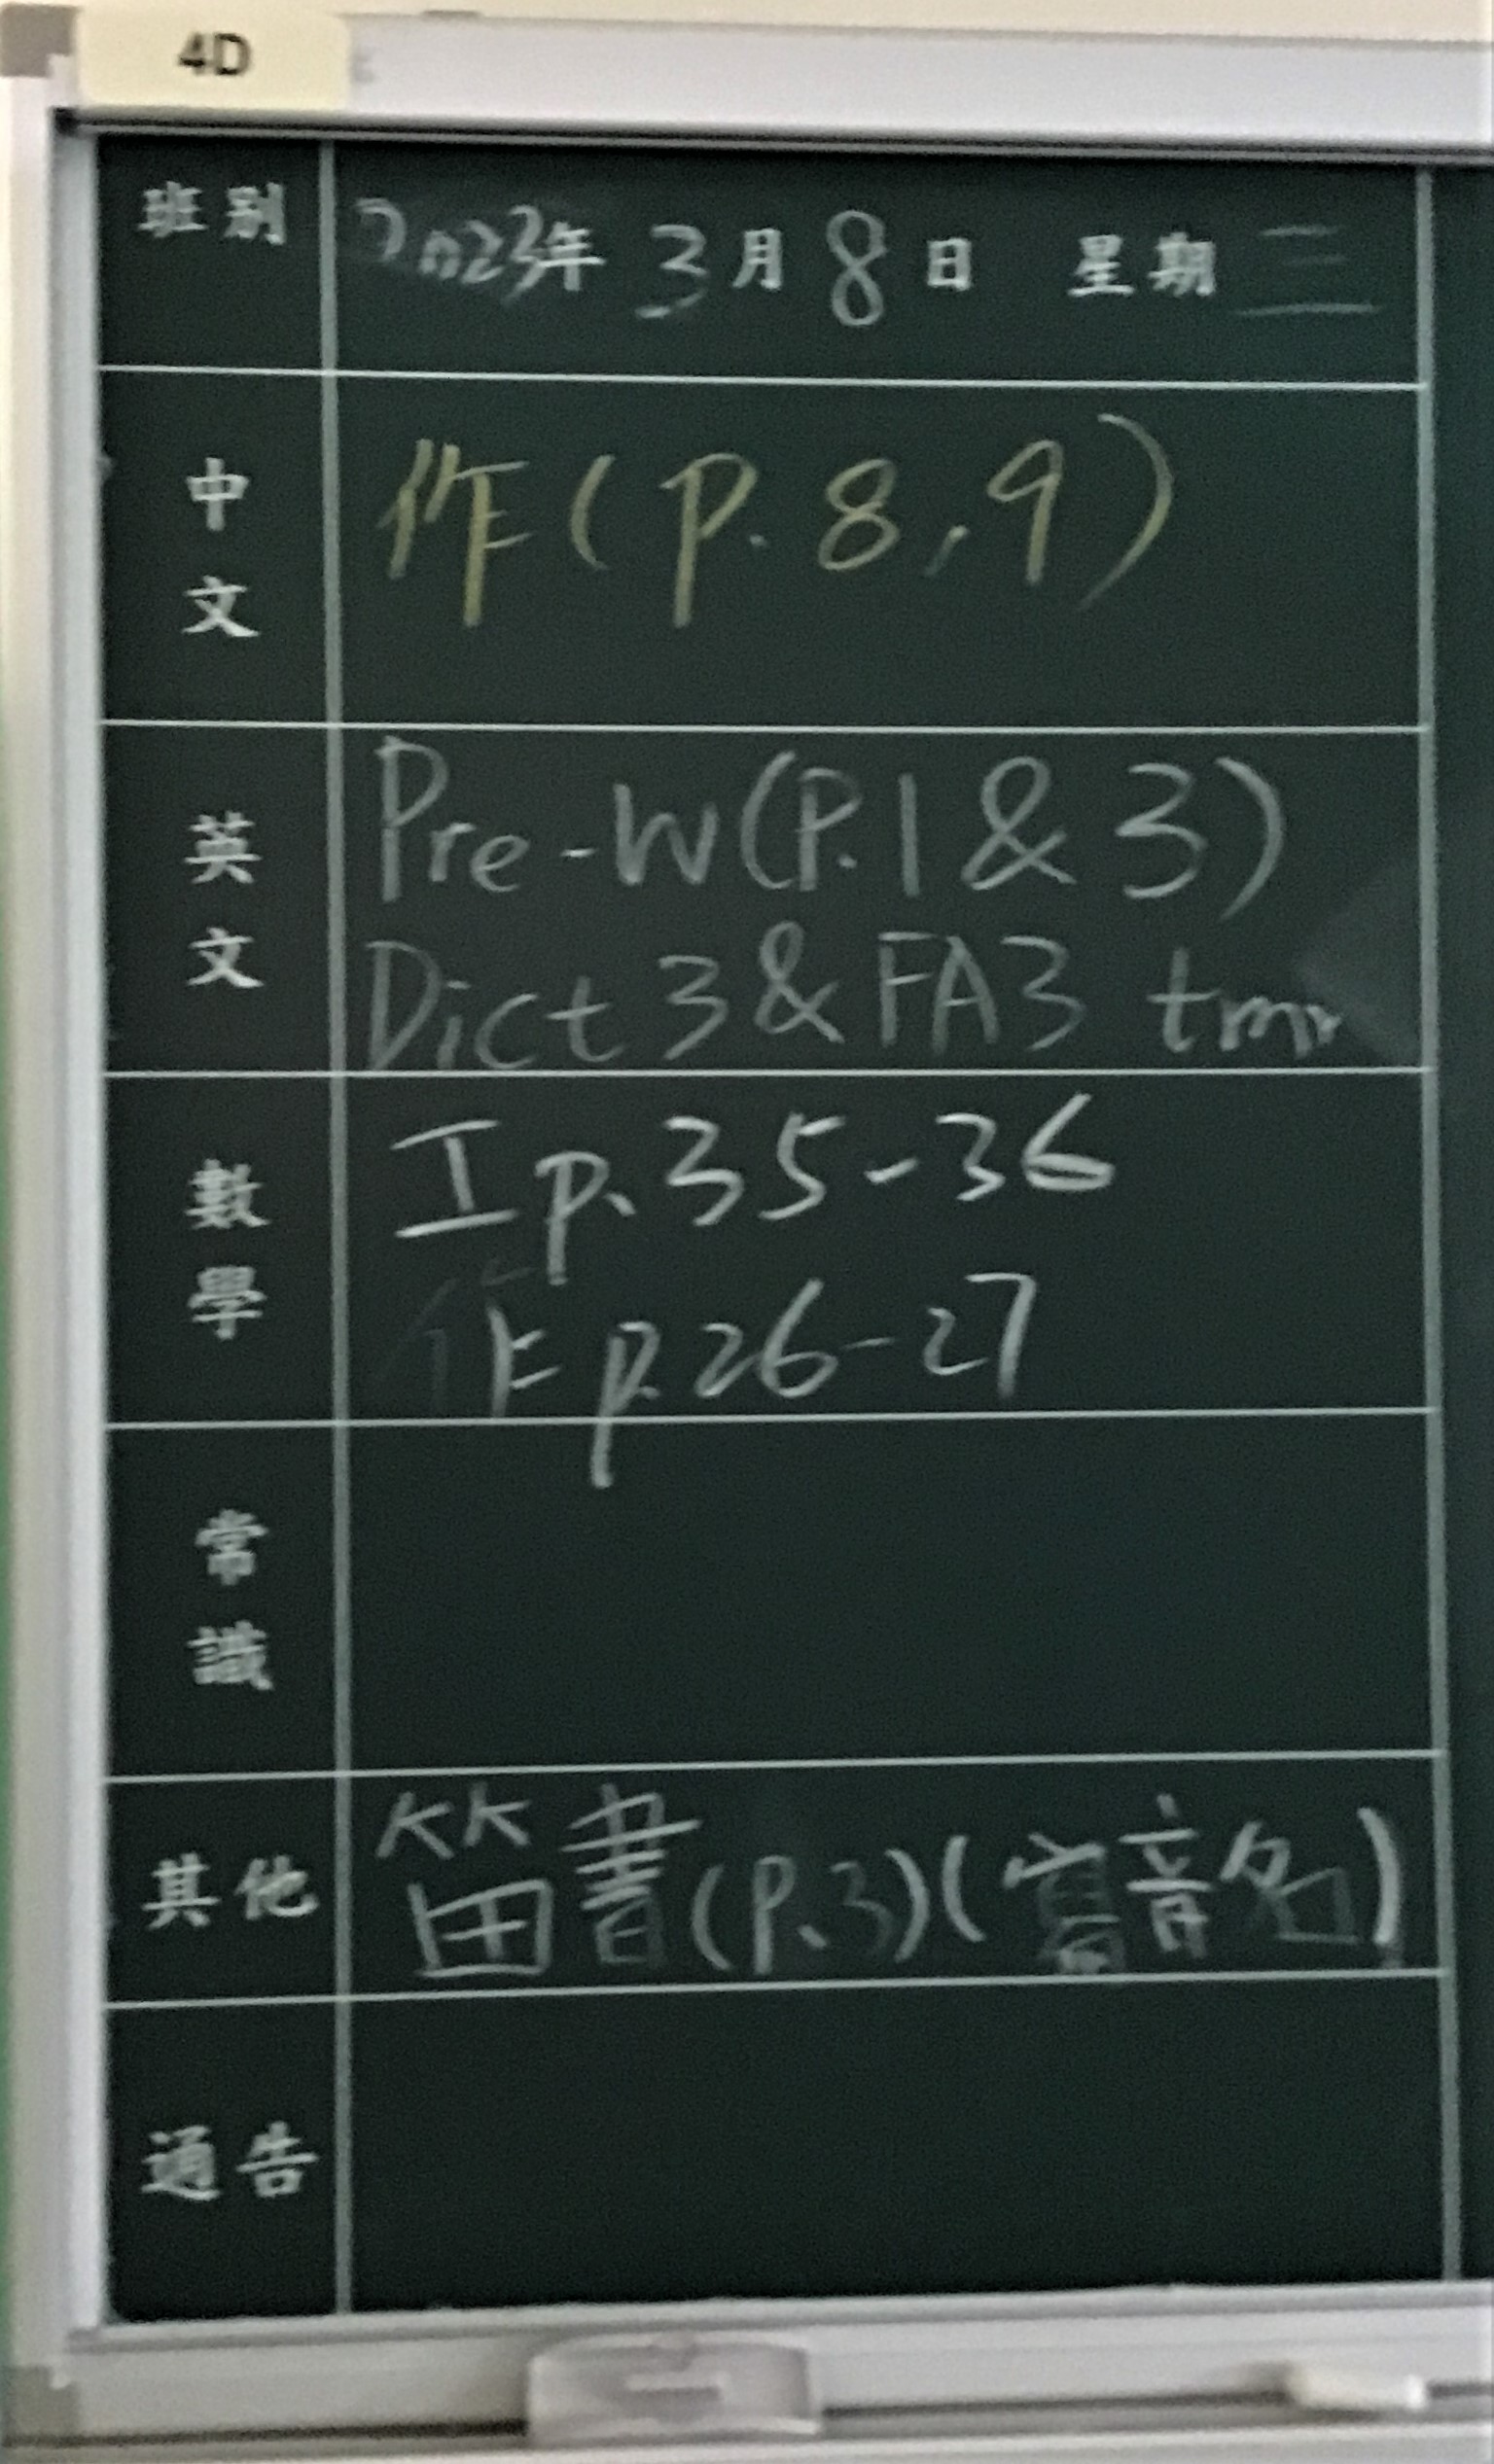 4D
班別 2023年 3月 8日 星期三
中文 作(p.8,9)
英文 Pre-W(P.1&3)
Dict 3 & FA3 tmr
數學 工p.35-36
作p.26-27
常識
其他 笛書(P.3)(寫音名)
通告